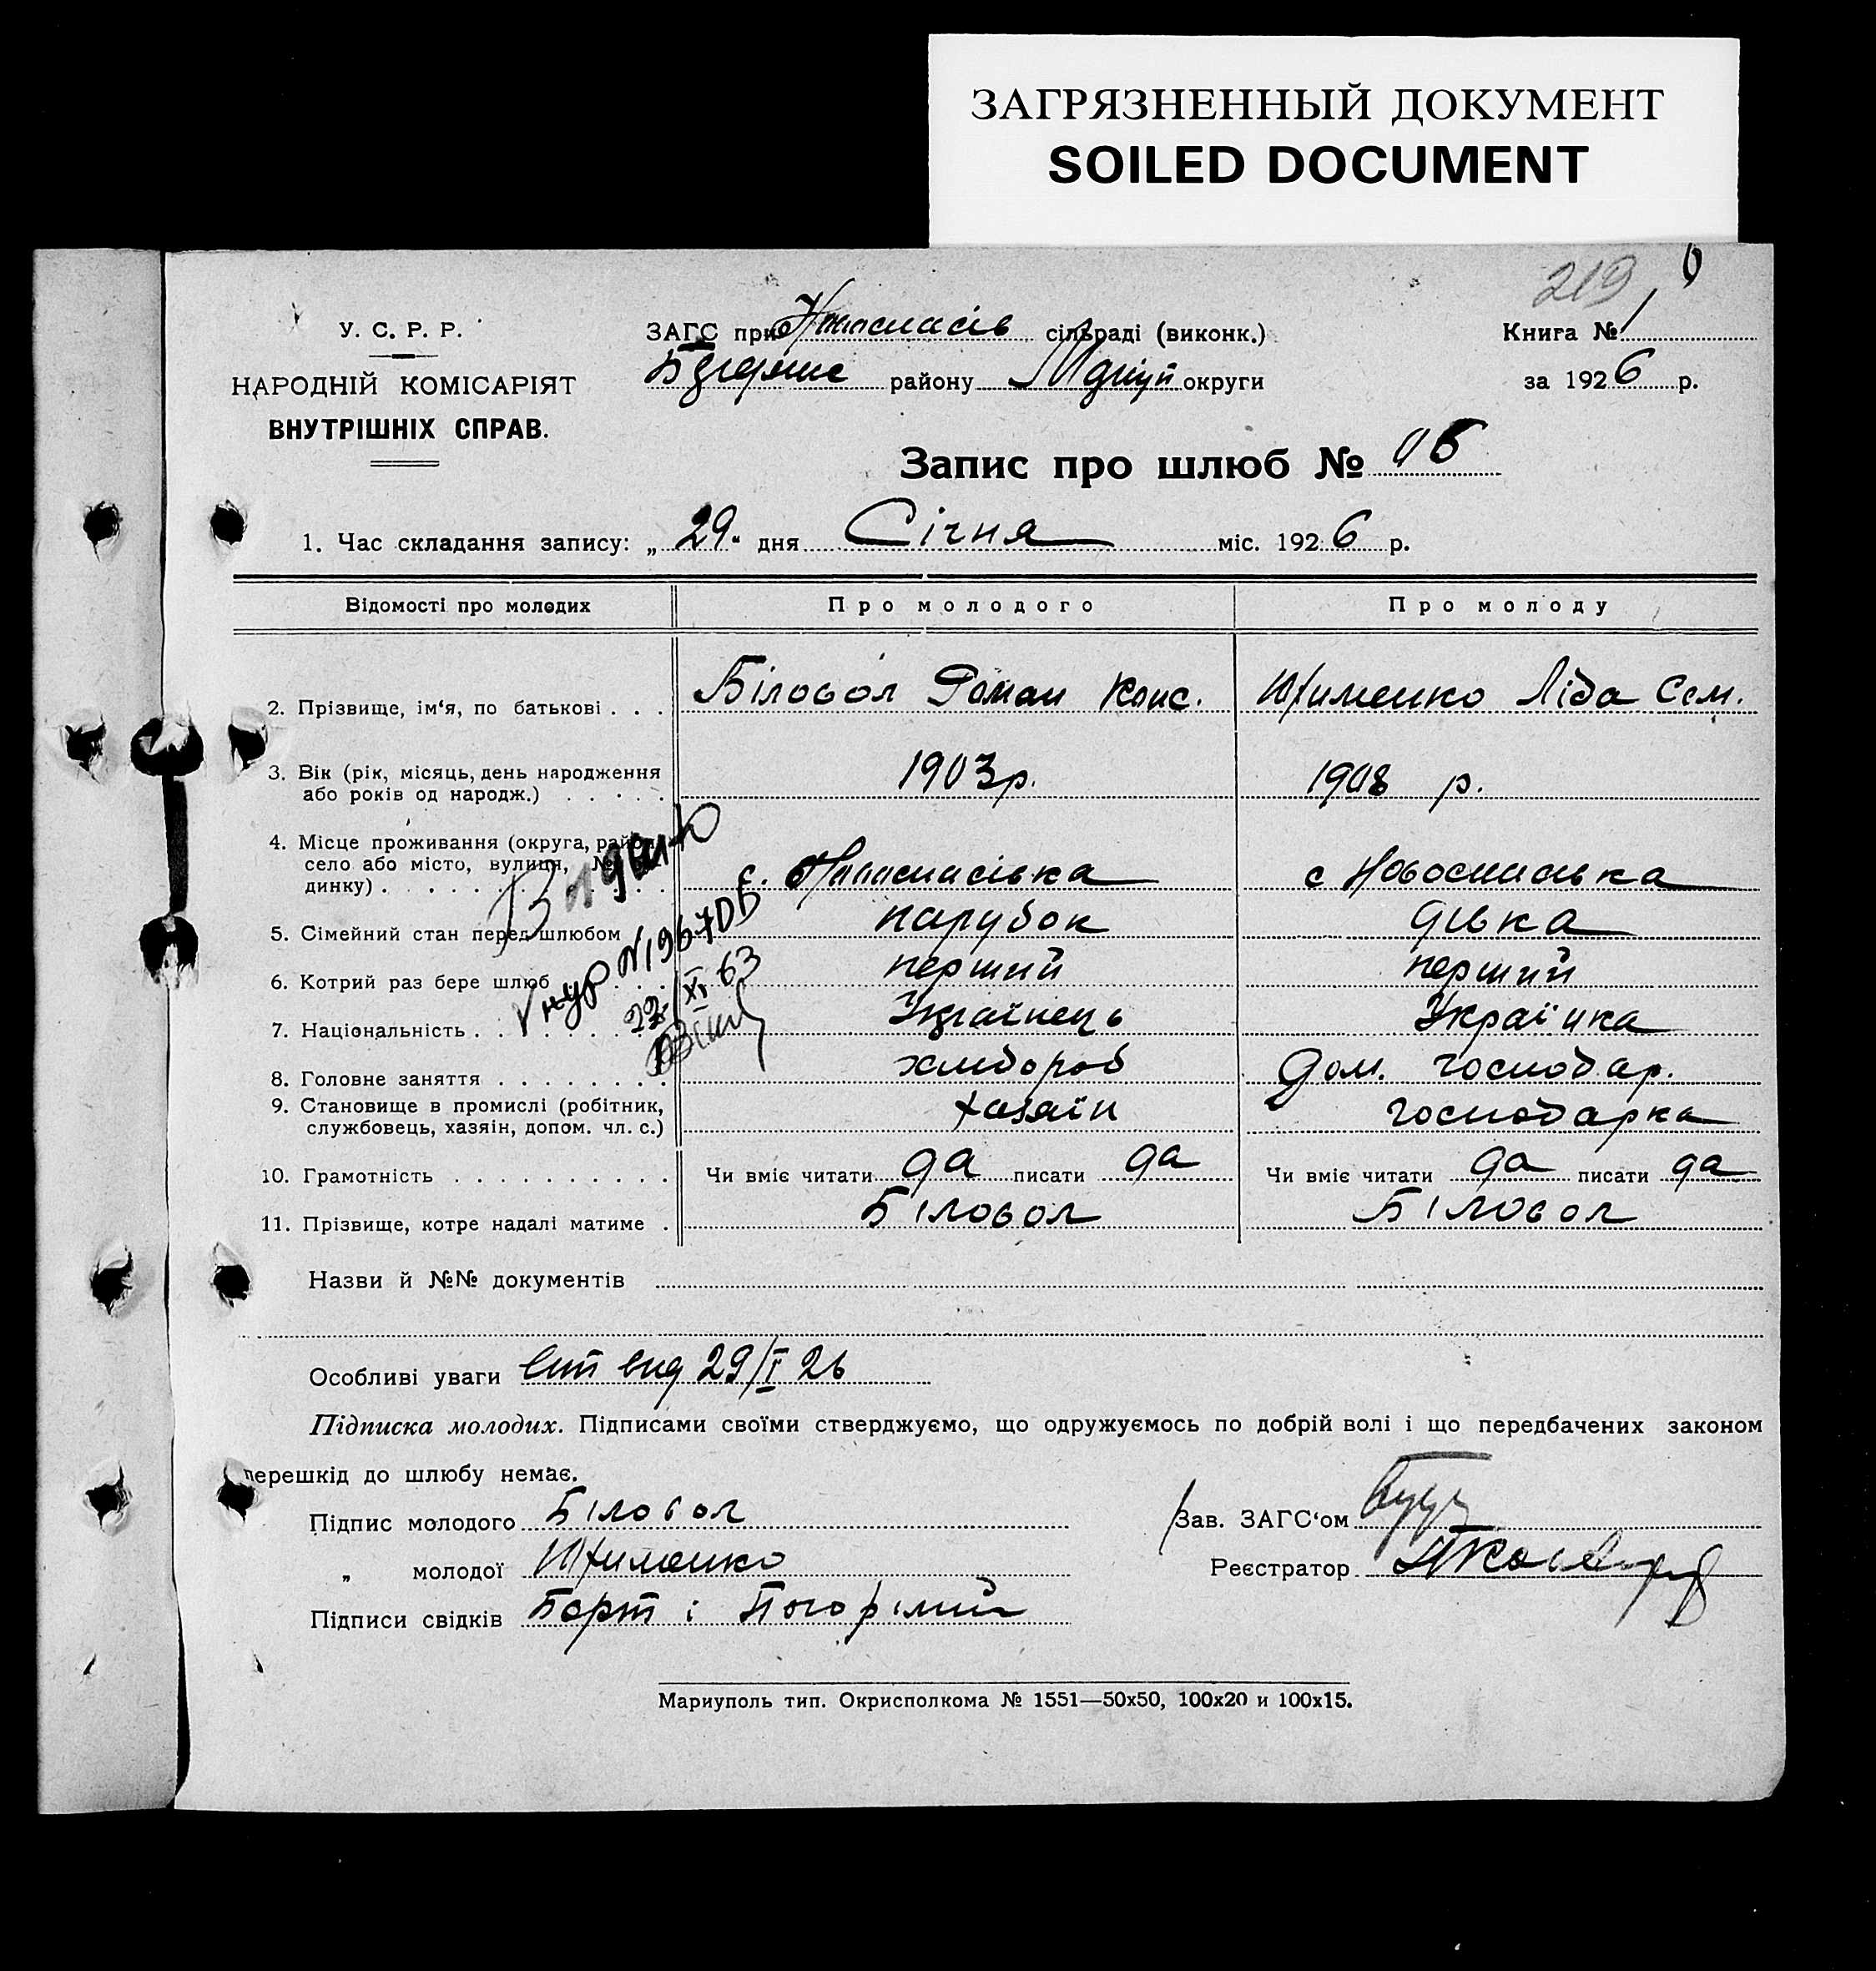 ЗАГРЯЗНЕННЫЙ ДОКУМЕНТ
SOILED DOCUMENT
219
У. С. Р. Р.
НАРОДНІЙ КОМІСАРІЯТ
ВНУТРІШНІХ СПРАВ.
ЗАГС при сільраді (виконк.)
району округи
Книга № 1
за 1926 р.
Запис про шлюб №
1. Час складання запису: „29" дня Січня міс. 1926 р.
Відомості про молодих Про молодого Про молоду
2. Прізвище, ім'я, по батькові . . . Біловол Роман Конс. Ліда Сем.
3. Вік (рік, місяць, день народження
або років од народж.) . . . . . 1903 р. 1908 р.
4. Місце проживання (округа, район,
село або місто, вулиця, №
динку) . с. с
5. Сімейний стан перед шлюбом парубок дівка
6. Котрий раз бере шлюб перший перший
7. Національність . . Українець Українка
8. Головне заняття . . . . . . . . хлібороб Дом. господар.
9. Становище в промислі (робітник,
службовець, хазяін, допом. чл. с.) хазяїн господарка
10. Грамотність . . . . . . . . . . Чи вміє читати да писати да Чи вміє читати да писати да
11. Прізвище, котре надалі матиме . Біловол Біловол
Назви й №№ документів
Особливі уваги вид 29/I 26
Підписка молодих. Підписами своїми стверджуємо, що одружуємось по добрій волі і що передбачених законом
перешкід до шлюбу немає.
Підпис молодого Біловол
Зав. ЗАГС'ом
„ молодої
Реєстратор
Підписи свідків і
Мариуполь тип. Окрисполкома № 1551—50х50, 100х20 и 100х15.